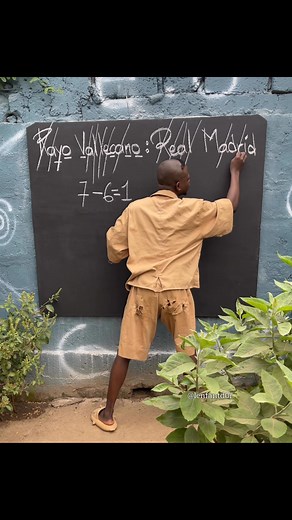 Rayo Vallecano: Real Madrid
7-6=1
@lenfantduc